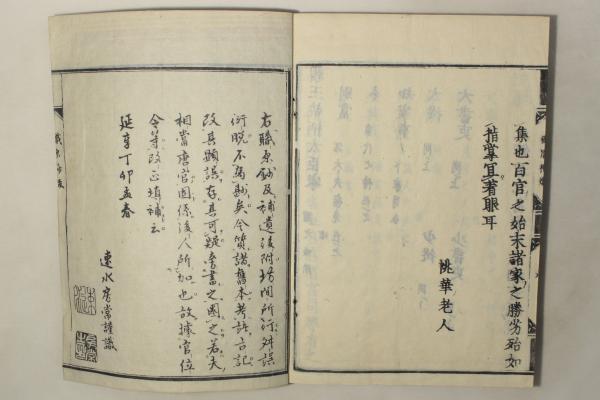 集也百官之始末諸家之勝劣殆如
指掌宜著眼耳
桃華老人
右職原鈔及補遺後附坊間所行舛誤
衍脱不為尠矣今質諸舊本考訂古記
改其顕誤存其可疑書之圏之若夫
相當唐官圏係後人所加也故據官位
令等改正填補云
延享丁卯孟春
速水房常謹識